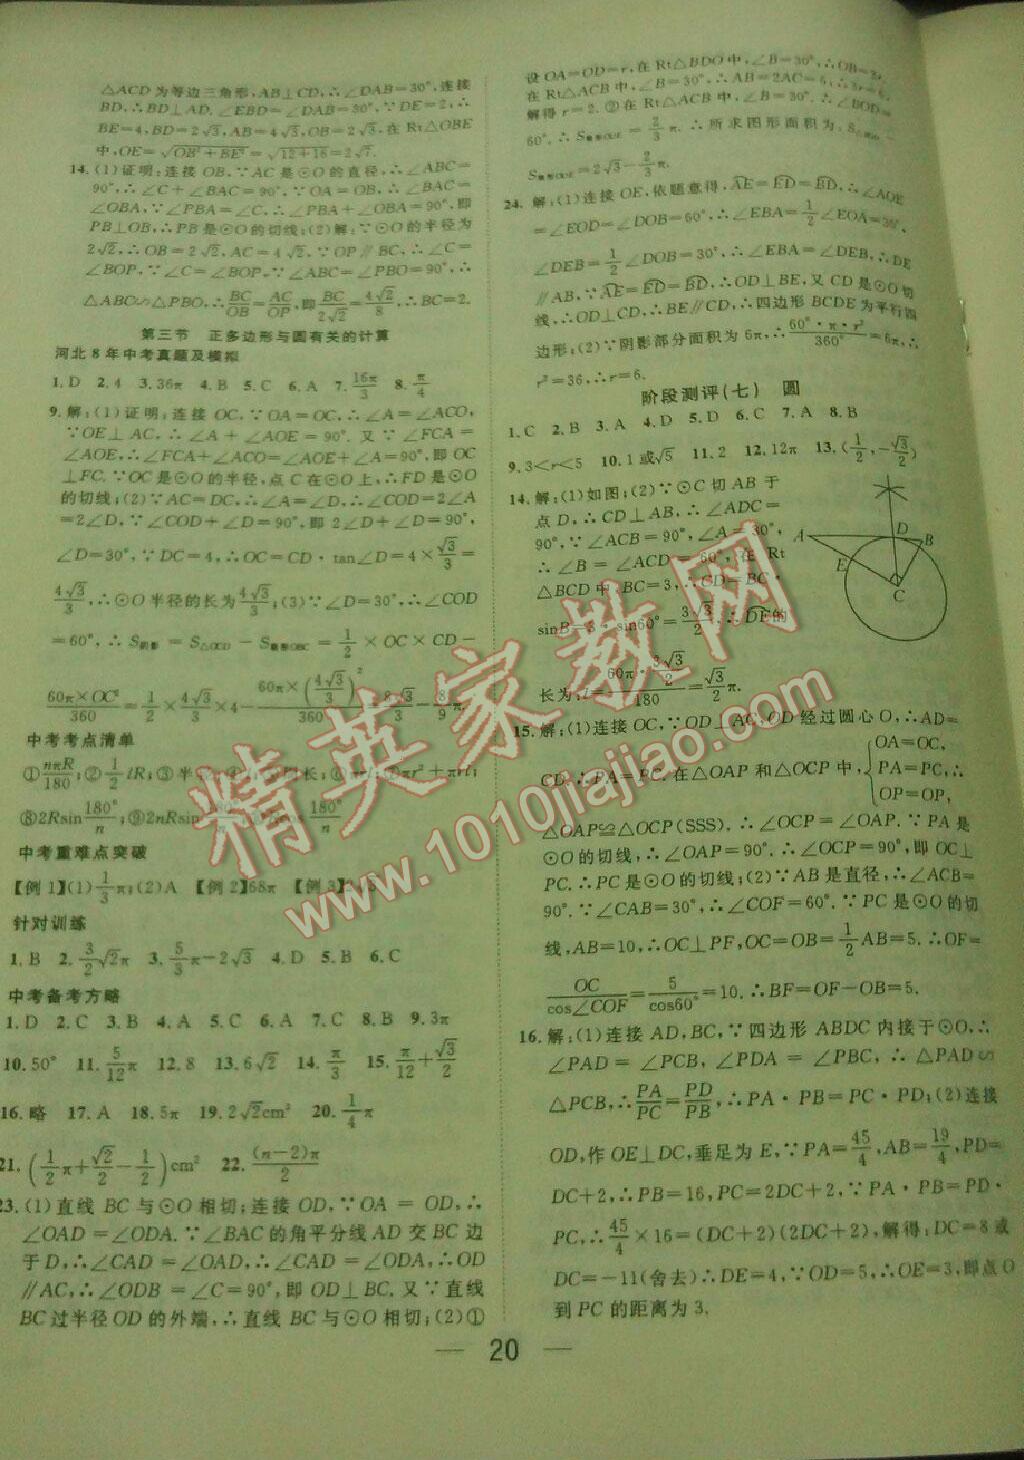 △ACD为等边三角形,AB⊥CD,∴∠DAB=30°,连接
BD,∴BD⊥AD,∠EBD=∠DAB=30°,∵DE=2,∴
BE=4,BD=2√3,AB=4√3,OB=2√3.在Rt△OBE
中,OE=√(OB²+BE²)=√(12+16)=2√7.
14.(1)证明:连接OB,∵AC是⊙O的直径,∴∠ABC=
90°,∴∠C+∠BAC=90°,∵OA=OB,∴∠BAC=
∠OBA,∵∠PBA=∠C,∴∠PBA+∠OBA=90°,即
PB⊥OB,∴PB是⊙O的切线;(2)解:∵⊙O的半径为
2√2,∴OB=2√2,AC=4√2.∵OP∥BC,∴∠C=
∠BOP,∵∠C=∠BOP,∵∠ABC=∠PBO=90°,∴
△ABC∽△PBO,∴BC/OB=AC/OP,即BC/2√2=4√2/8,∴BC=2.
第三节 正多边形与圆有关的计算
河北8年中考真题及模拟
1.D 2.4 3.36π 4.B 5.C 6.A 7.16π/3 8.π/4
9.解:(1)证明:连接OC,∵OA=OC,∴∠A=∠ACO,
∵OE⊥AC,∴∠A+∠AOE=90°.又∵∠FCA=
∠AOE,∴∠FCA+∠ACO=∠A+∠AOE=90°,即OC
⊥FC.∵OC是⊙O的半径,点C在⊙O上,∴FD是⊙O
的切线;(2)∵AC=DC,∴∠A=∠D,∴∠COD=2∠A
=2∠D.∵∠COD+∠D=90°,即2∠D+∠D=90°,
∠D=30°,∵DC=4,∴OC=CD·tan∠D=4×√3/3=
4√3/3,∴⊙O半径的长为4√3/3;(3)∵∠D=30°,∴∠COD
=60°,∴S阴影=S△OCD-S扇形OBC=1/2×OC×CD-
60π×OC²/360=1/2×4√3/3×4-60π×(4√3/3)²/360=8√3/3-8/9π.
中考考点清单
①nπR/180;②1/2lR;③半径;④ ⑤周长;⑥πrl;⑦πr²+πrl;
⑧2Rsin180°/n;⑨2nRsin180°/n;⑩Rcos180°/n
中考重难点突破
【例1】(1)1/3π;(2)A 【例2】68π 【例3】2√3
针对训练
1.B 2.3/2√2π 3.5/3π-2√3 4.D 5.B 6.C
中考备考方略
1.D 2.C 3.B 4.A 5.C 6.A 7.C 8.B 9.3π
10.50° 11.5/12π 12.8 13.6√2 14.π/3 15.π/12+√3/2
16.略 17.A 18.5π 19.2√2cm² 20.1/4π
21.(1/2π+√2/2-1/2)cm² 22.(n-2)π/2
23.(1)直线BC与⊙O相切;连接OD,∵OA=OD,∴
∠OAD=∠ODA.∵∠BAC的角平分线AD交BC边
于D,∴∠CAD=∠OAD,∴∠CAD=∠ODA,∴OD
∥AC,∴∠ODB=∠C=90°,即OD⊥BC.又∵直线
BC过半径OD的外端,∴直线BC与⊙O相切;(2)①
设OA=OD=r,在Rt△BDO中,∠B=30°,∴OB=2r,
在Rt△ACB中,∠B=30°,∴AB=2AC=6,∴3r=6,
解得r=2.②在Rt△ACB中,∠B=30°,∴∠BOD=
60°.∴S扇形ODE=2/3π.∴所求图形面积为:S△BOD-
S扇形ODE=2√3-2/3π.
24.解:(1)连接OE,依题意得,AE=ED=BD,∴∠AOE
=∠EOD=∠DOB=60°,∴∠EBA=1/2∠EOA=30°,
∠DEB=1/2∠DOB=30°,∴∠EBA=∠DEB,∴DE
∥AB,∵AE=ED=BD,∴OD⊥BE,又CD是⊙O切
线,∴OD⊥CD,∴BE∥CD,∴四边形BCDE为平行四
边形;(2)∵阴影部分面积为6π,∴60°·π·r²/360°=6π,∴
r²=36,∴r=6.
阶段测评(七) 圆
1.C 2.B 3.A 4.D 5.D 6.C 7.A 8.B
9.3<r<5 10.1或√5 11.2 12.12π 13.(1/2,-√3/2)
14.解:(1)如图;(2)∵⊙C切AB于
点D,∴CD⊥AB,∴∠ADC=
90°,∵∠ACB=90°,∠A=30°,
∴∠B=∠ACD=60°,在Rt
△BCD中,BC=3,∴CD=BC·
sinB=3·sin60°=3√3/2,∴DE的
长为:l=60π·3√3/2/180=√3/2π.
A D B E C
15.解:(1)连接OC,∵OD⊥AC,OD经过圆心O,∴AD=
CD,∴PA=PC.在△OAP和△OCP中,{OA=OC,PA=PC,OP=OP,∴
△OAP≌△OCP(SSS).∴∠OCP=∠OAP.∵PA是
⊙O的切线,∴∠OAP=90°.∴∠OCP=90°,即OC⊥
PC.∴PC是⊙O的切线;(2)∵AB是直径,∴∠ACB=
90°.∵∠CAB=30°,∴∠COF=60°.∵PC是⊙O的切
线,AB=10,∴OC⊥PF,OC=OB=1/2AB=5.∴OF=
OC/cos∠COF=5/cos60°=10.∴BF=OF-OB=5.
16.解:(1)连接AD,BC,∵四边形ABDC内接于⊙O,∴
∠PAD=∠PCB,∠PDA=∠PBC,∴△PAD∽
△PCB,∴PA/PC=PD/PB,∴PA·PB=PC·PD;(2)连接
OD,作OE⊥DC,垂足为E,∵PA=45/4,AB=19/4,PD=
DC+2,∴PB=16,PC=2DC+2,∵PA·PB=PD·
PC,∴45/4×16=(DC+2)(2DC+2),解得:DC=8或
DC=-11(舍去)∴DE=4,∵OD=5,∴OE=3,即点O
到PC的距离为3.
— 20 —
精英家教网
www.1010jiajiao.com